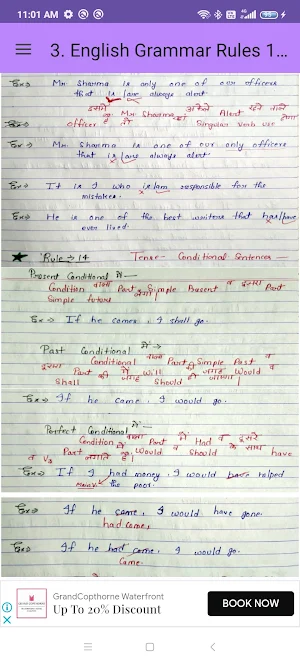 11:01 AM
99
3. English Grammar Rules 1...
Ex⇒ Mr. Sharma is only one of our officers
that is/are always alert.
इसमें अकेले Alert रहने वाले
officer Mr Sharma Singular Verb use होगा
Ex⇒ Mr. Sharma is one of our only officers
that is/are always alert.
Ex⇒ It is I who is/am responsible for the
mistakes.
Ex⇒ He is one of the best writers that has/have
ever lived.
★ Rule ⇒ 14 Tense - Conditional Sentences -
Present Conditional में -
Condition वाला Part Simple Present व दूसरा Part
Simple future
Ex⇒ If he comes, I shall go.
Past Conditional में ⇒
Conditional वाला Part Simple Past व
दूसरा Part में will की जगह Would व
Shall की जगह Should
Ex⇒ If he came, I would go.
Perfect Conditional में -
Condition वाला Part में Had व दूसरे
Part Would व Should के साथ have
व V3 लगाते हैं।
Ex⇒ If I had money, I would have helped
the poor.
Ex⇒ If he came, I would have gone.
had come,
Ex⇒ If he had come, I would go.
Came.
GrandCopthorne Waterfront
Up To 20% Discount
BOOK NOW